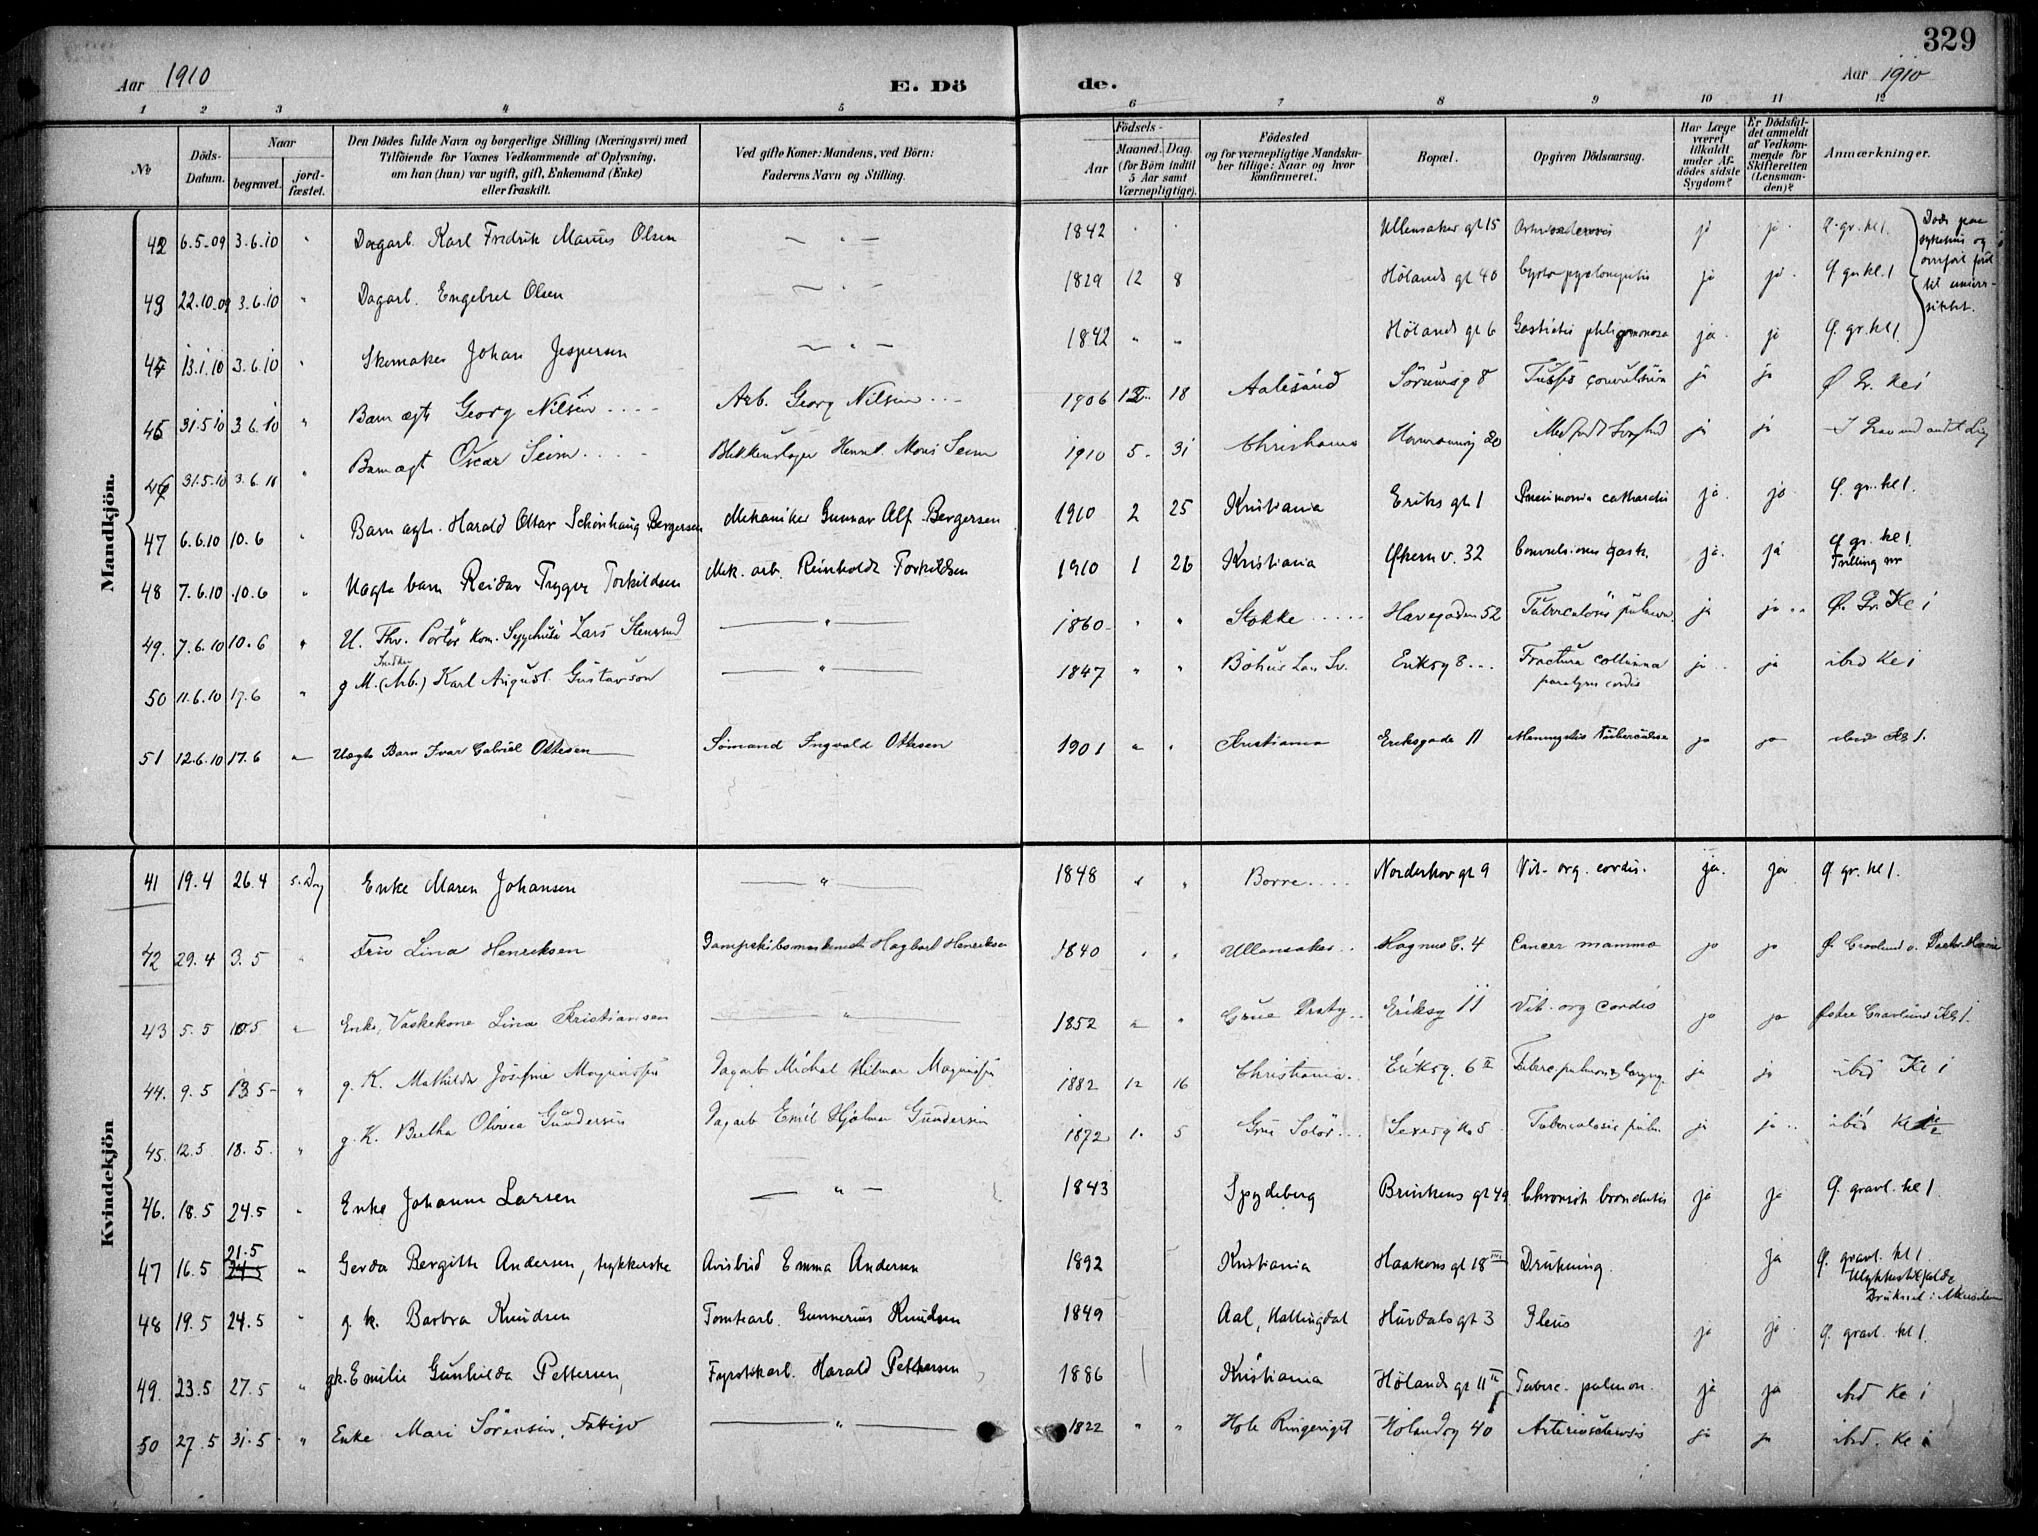 329
Aar 1910 E. Dö de. Aar 1910
1 2 3 4 5 6 7 8 9 10 11 12
No
Döds-Datum.
Naar
begravet.
jord-fæstet.
Den Dödes fulde Navn og borgerlige Stilling (Næringsvei) med
Tilföiende for Voxnes Vedkommende af Oplysning,
om han (hun) var ugift, gift, Enkemand (Enke)
eller fraskilt.
Ved gifte Koner: Mandens, ved Börn:
Faderens Navn og Stilling.
Födsels-
Aar
Maaned. Dag.
(for Börn indtil
5 Aar samt
Værnepligtige).
Födested
og for værnepligtige Mandska-
ber tillige: Naar og hvor
konfirmeret.
Bopæl.
Opgiven Dödsaarsag.
Har Læge
været
tilkaldt
under Af-
dödes sidste
Sygdom?
Er Dödsfal-
det anmeldt
af Vedkom-
mende for
Skifteretten
(Lensman-
den)?
Anmærkninger.
Mandkjön.
42 6.5.09 3.6.10 " Dagarb. Karl Fredrik Marius Olsen — " — 1842 " " Ullensaker gt 15 ja ja Ø. gr. kl 1.
43 22.10.09 3.6.10 " Dagarb. Engebret Olsen — " — 1829 12 8 Hölands gt 40 ja ja Ø gr. kl. 1
44 13.1.10 3.6.10 " Skomaker Johan Jespersen — " — 1842 " " Hölands gt 6 ja ja Ø. gr. kl 1
Döds paa sykehus og
til univer-
sitetet.
45 31.5.10 3.6.10 " Barn ægte Georg Nilsen Arb. Georg Nilsen 1906 12 18 Aalesund Sörumsg 8 Tussis convulsiva ja ja Ø Gr. Kl 1
46 31.5.10 3.6.10 " Barn ægt Oscar Seim 1910 5 31 Christiania 20 ja ja I Grav med andet Lig
47 6.6.10 10.6 " Barn ægte. Harald Ottar Schönhaug Bergersen Mekaniker Gunnar Alf Bergersen 1910 2 25 Kristiania Eriks gt 1 Pneumonia catharalis ja ja Ø. gr. kl 1.
48 7.6.10 10.6 " Uægte barn Reidar Trygve Torkildsen Mek. arb. Reinholdt Torkildsen 1910 1 26 Kristiania Økern v. 32 ja. ja Ø gr. kl 1. Tvilling
49. 7.6.10 10.6 " U. Thv. Portör Kom. Sygehuse Lars Stensrud — " — 1860 " " Stokke Havegaden 52 Tuberculosis pulmon. ja ja Ø. Gr. Kl 1
50 11.6.10 17.6 " g M. (Arb.) Snedker Karl August Gustavson — " — 1847 " " Bohus Len Sv. Eriksg 8 Fractura
paralysis cordis ja ja ibid Kl 1
51 12.6.10 17.6 " Uægte Barn Ivar Gabriel Ottesen Sömand Ingvald Ottesen 1901 " " Kristiania Eriksgade 11 Meningitis Tuberculosa ja ja ibid Kl 1.
Kvindekjön
41 19.4 26.4 s. Dag Enke Maren Johansen — " — 1848 " " Borre Norderhov gt 9 Vit. org. cordis. ja. ja Ø gr. kl 1.
42 29.4 3.5 " Fru Lina Henriksen Dampskibsmaskinist Hagbart Henriksen 1840 " " Ullensaker Magnus G. 4 Cancer mamma ja ja
43 5.5 10.5 " Enke, Vaskekone Lina Kristiansen — " — 1852 " " Grue Eriksg 11 Vit. org cordis ja ja Östre Gravlund Kl 1.
44. 9.5 13.5 " g. K. Mathilde Josefine Magnussen Dagarb Michal Hilmar Magnussen 1882 12 16 Christiania Eriksg. 6 II Tuberc. pulmon & laryng. ja ja ibid Kl 1
45. 12.5 18.5. " g. K. Bertha Olivia Gundersen Dagarb Emil Hjalmar Gundersen 1872 1. 5 Grue Solör Tuberculosis pulm. ja ja ibid Kl
46. 18.5 24.5 " Enke Johanne Larsen — " — 1843 Spydeberg Brinkens gt 49 Chronisk bronchitis ja ja Ø. gravl. kl 1.
47 16.5 21.5 24.5 " Gerda Bergitte Andersen, trykkerske Avisbud Emma Andersen 1892 Kristiania Haakons gt 18 III Drukning. ja Ø. gravl. kl 1
Ulykkestilfælde
48 19.5 24.5 " g. k. Barbra Knudsen Tomtearb. Gunnerius Knudsen 1849 Aal, Hallingdal Hurdals gt 3 Ileus ja ja Ø. gravl. kl 1.
49. 23.5 27.5 " gk. Emilie Gunhilda Pettersen, Fyrstikarb. Harald Pettersen 1886 Kristiania Hölands gt 11 II Tuberc. pulmon. ja ja ibid Kl 1
50 27.5 31.5 " Enke Mari Sörensen, — " — 1822 " " Hole Ringeriget Hölandsg 40 Arteriosclerosis ja ja ibid. Kl 1